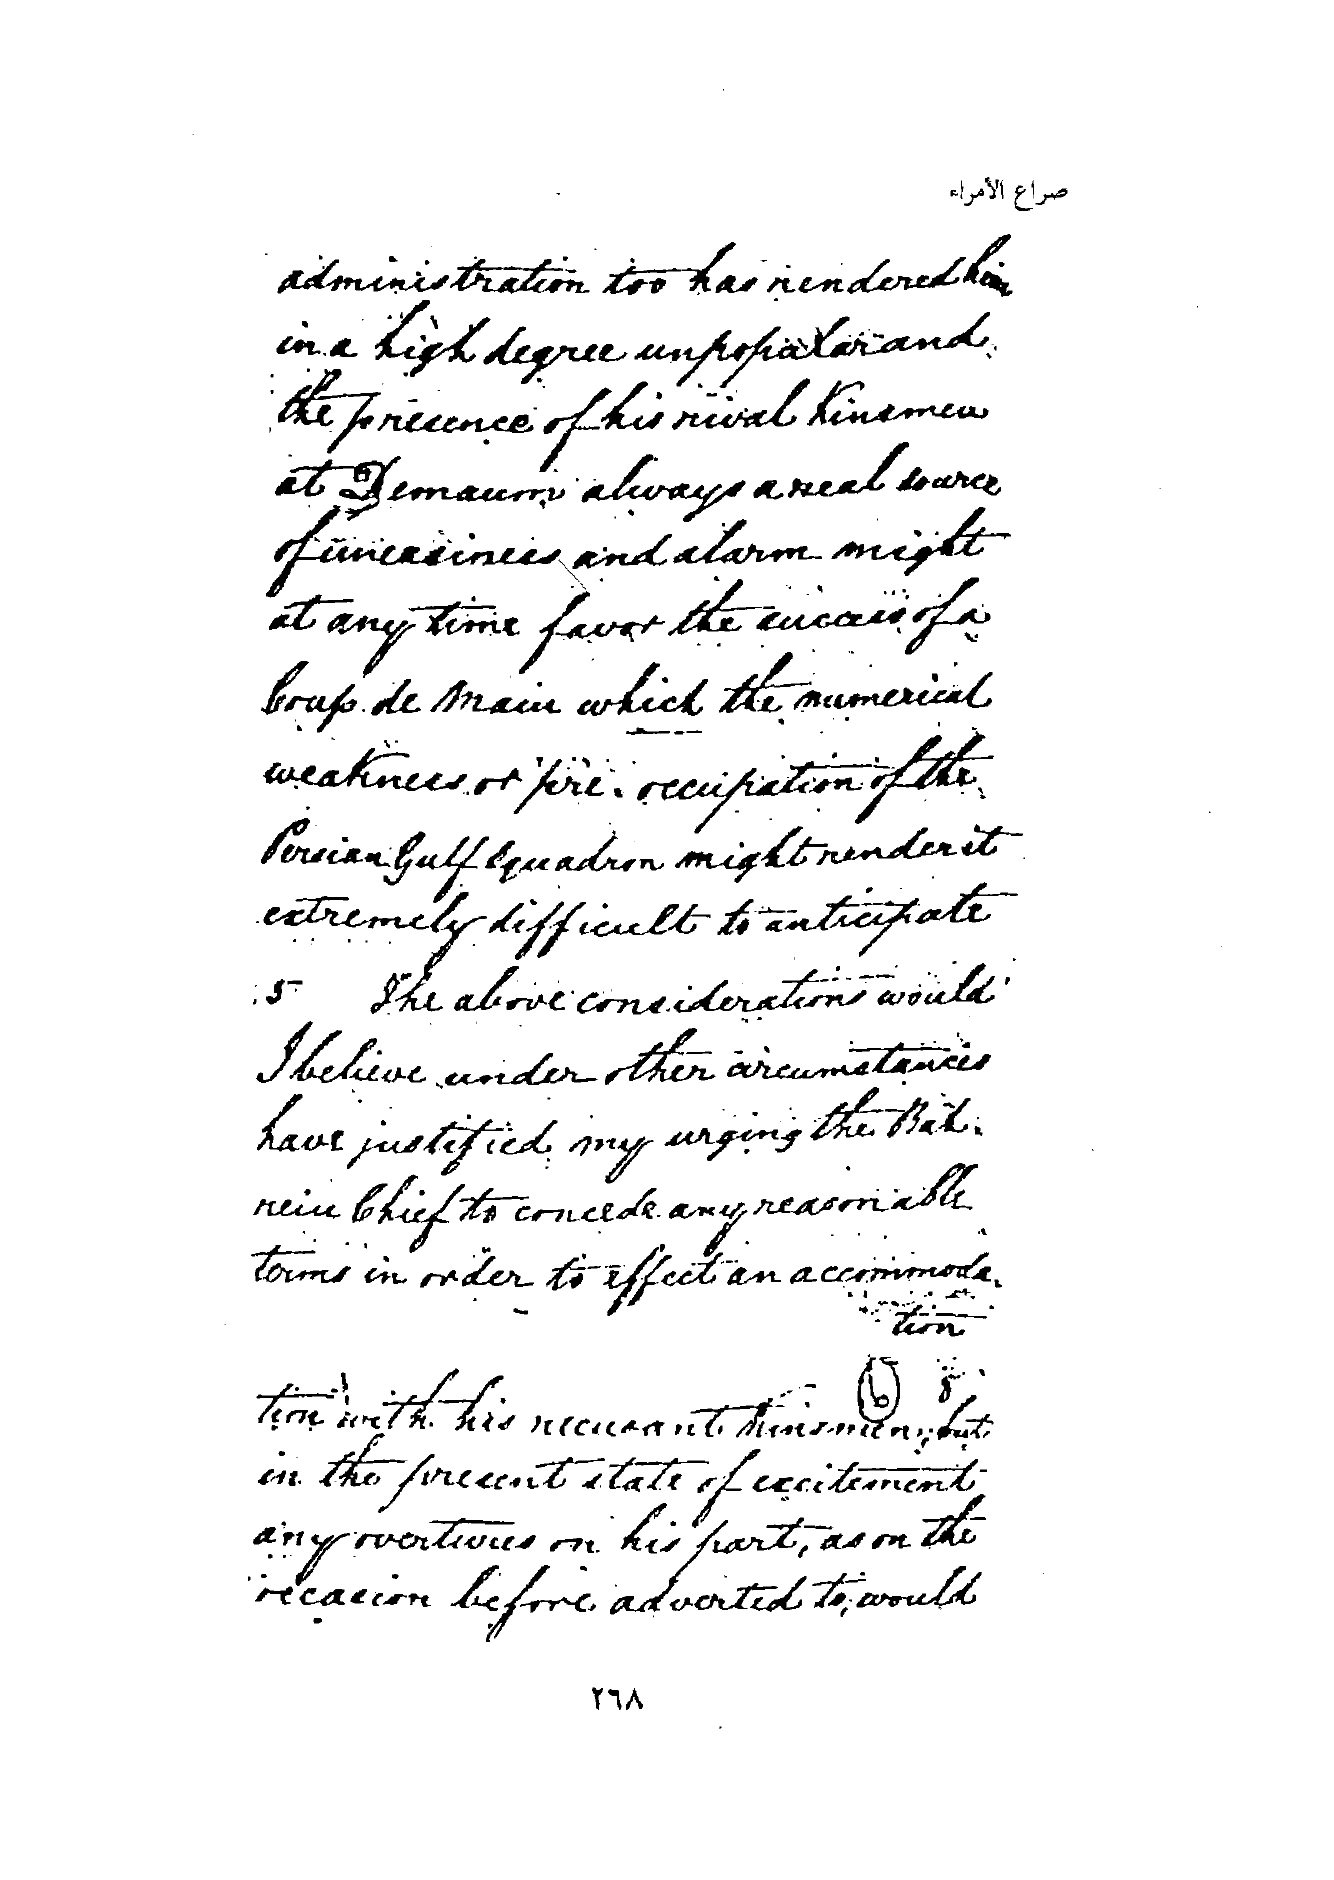 صراع الأمراء
administration too has rendered him
in a high degree unpopular and
the presence of his rival Kinsmen
at Demaum always a real source
of uneasiness and alarm might
at any time favor the success of a
Coup de Main which the numerical
weakness or pre-occupation of the
Persian Gulf Squadron might render it
extremely difficult to anticipate
5 The above considerations would
I believe under other circumstances
have justified my urging the Bah-
rein Chief to concede any reasonable
terms in order to effect an accommoda-
tion
6 8
tion with his recusant Kinsmen, but
in the present state of excitement
any overtures on his part, as on the
occasion before adverted to, would
٢٦٨